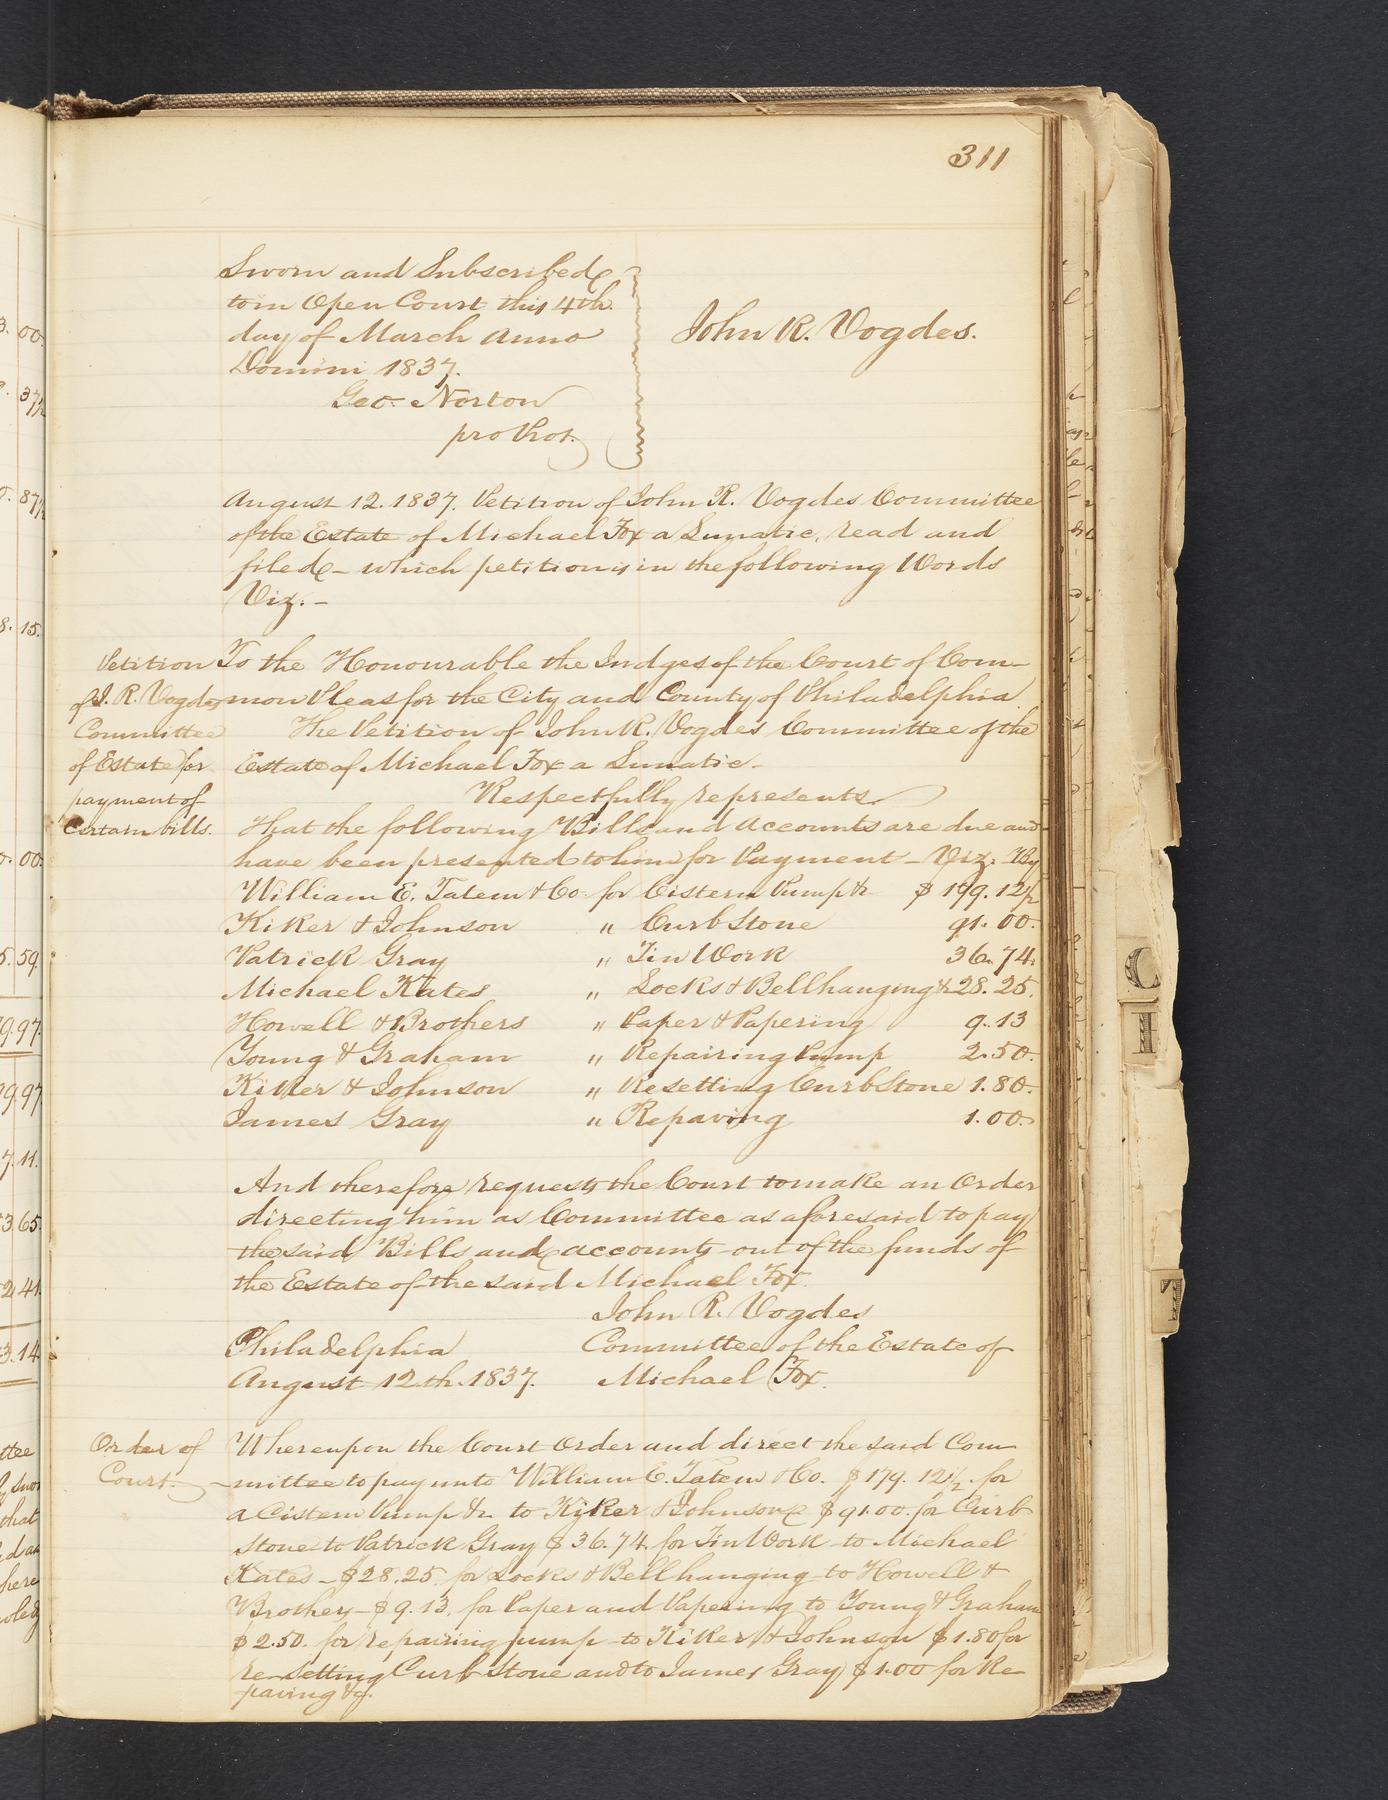 311
Sworn and Subscribed
to in Open Court this 4th
day of March Anno
Domini 1837.
Geo. Norton
prothot.
John R. Vogdes.
August 12. 1837. Petition of John R. Vogdes Committee
of the Estate of Michael Fox a Lunatic, read and
filed – which petition is in the following Words
Viz. –
Petition
of J. R. Vogdes
Committee
of Estate for
payment of
Certain bills.
To the Honourable the Judges of the Court of Com-
mon Pleas for the City and County of Philadelphia
The Petition of John R. Vogdes Committee of the
Estate of Michael Fox a Lunatic –
Respectfully represents
That the following Bills and Accounts are due and
have been presented to him for Payment – Viz: By
William E. Tatem & Co. for Cistern Pump &c $ 179. 12½
Kiker & Johnson " Curb Stone 91. 00.
Patrick Gray " Tin Work 36. 74.
Michael Kates " Locks & Bellhanging &c 28. 25.
Howell & Brothers " Paper & Papering 9. 13
Young & Graham " Repairing Pump 2. 50.
Kiker & Johnson " Resetting Curb Stone 1. 80.
James Gray " Repaving 1. 00.
And therefore requests the Court to make an Order
directing him as Committee as aforesaid to pay
the said Bills and accounts out of the funds of
the Estate of the said Michael Fox.
John R. Vogdes
Philadelphia Committee of the Estate of
August 12th. 1837. Michael Fox.
Order of
Court.
Whereupon the Court Order and direct the said Com-
mittee to pay unto William E. Tatem & Co. $ 179. 12½ for
a Cistern Pump &c to Kiker & Johnson $ 91.00. for Curb
Stone to Patrick Gray $ 36. 74. for Tin Work to Michael
Kates – $28.25 for Locks & Bellhanging to Howell &
Brothers – $ 9. 13. for Paper and Papering to Young & Graham
$ 2.50. for repairing pump to Kiker & Johnson $ 1.80 for
re-setting Curb Stone and to James Gray $ 1.00 for Re-
paving &c.
C
I
T